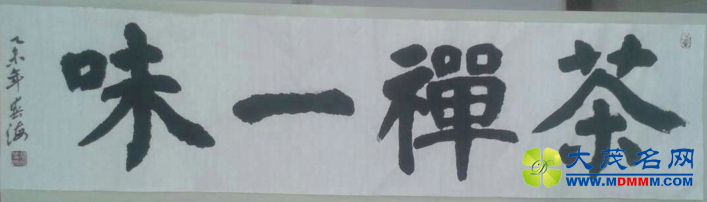 茶禪一味
乙未年
大茂名网
WWW.MDMMM.COM